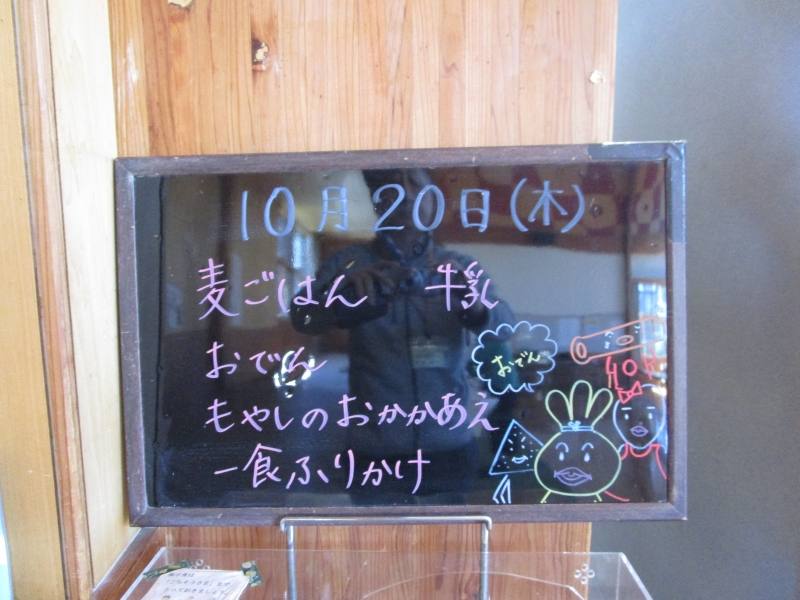 10月20日(木)
麦ごはん 牛乳
おでん
もやしのおかかあえ
一食ふりかけ
おでん